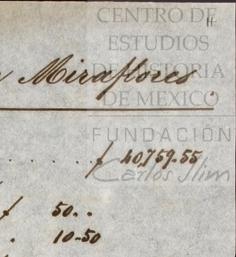 CENTRO DE
ESTUDIOS
DE HISTORIA
DE MEXICO
Miraflores.
FUNDACIÓN
Carlos Slim
. . . . . . . f 40,759.55
f 50..
. 10-50